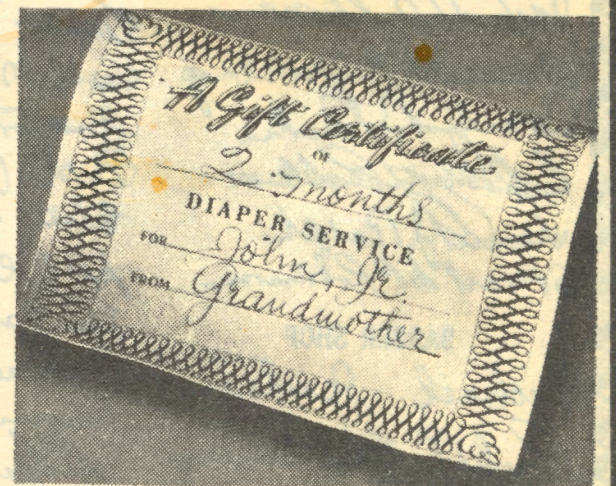 A Gift Certificate
OF
2 months
DIAPER SERVICE
FOR John, Jr.
FROM Grandmother